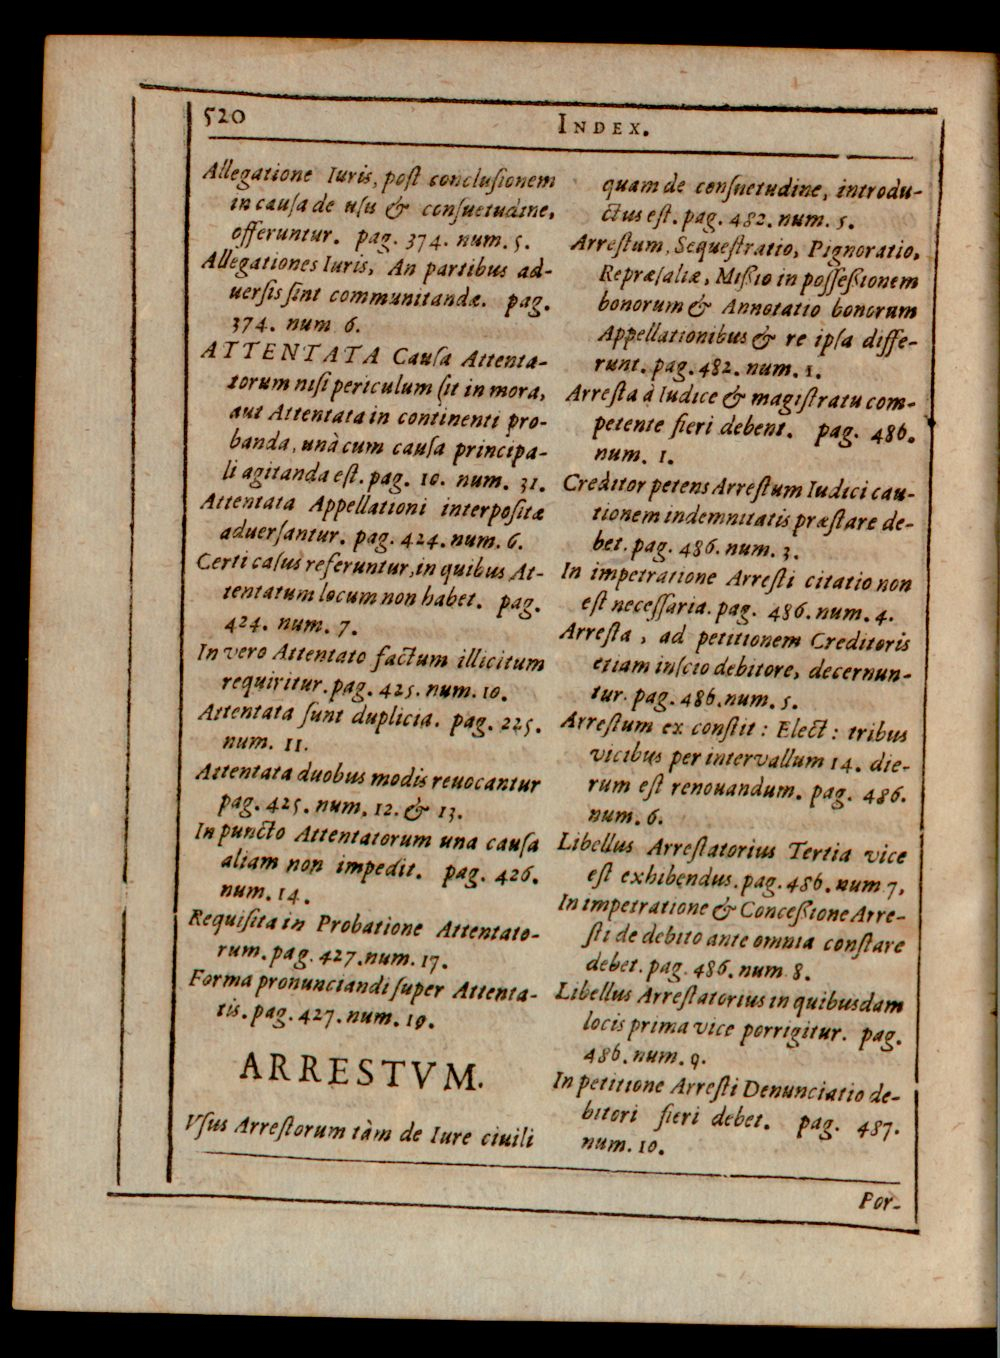 520
INDEX.
Allegatione Iuris, poſt concluſionem
in cauſa de uſu & conſuetudine,
offeruntur. pag. 374. num. 5.
Allegationes Iuris, An partibus ad-
uerſis ſint communitandæ. pag.
374. num 6.
ATTENTATA Cauſa Attenta-
torum niſi periculum ſit in mora,
aut Attentata in continenti pro-
banda, unà cum cauſa principa-
li agitanda eſt. pag. 10. num. 31.
Attentata Appellationi interpoſitæ
aduerſantur. pag. 424. num. 6.
Certi caſus referuntur, in quibus At-
tentatum locum non habet. pag.
424. num. 7.
In vero Attentato factum illicitum
requiritur. pag. 425. num. 10.
Attentata ſunt duplicia. pag. 225.
num. 11.
Attentata duobus modis reuocantur
pag. 425. num, 12. & 13.
In puncto Attentatorum una cauſa
aliam non impedit. pag. 426.
num. 14.
Requiſita in Probatione Attentato-
rum. pag. 427. num. 17.
Forma pronunciandi ſuper Attenta-
tis. pag. 427. num. 19.
ARRESTVM.
Vſus Arreſtorum tàm de Iure ciuili
quam de conſuetudine, introdu-
ctus eſt. pag. 482. num. 5.
Arreſtum, Sequeſtratio, Pignoratio,
Repræſaliæ, Mißio in poſſeßionem
bonorum & Annotatio bonorum
Appellationibus & re ipſa diffe-
runt. pag. 482. num. 1.
Arreſta à Iudice & magiſtratu com-
petente fieri debent. pag. 486.
num. 1.
Creditor petens Arreſtum Iudici cau-
tionem indemnitatis præſtare de-
bet. pag. 486. num. 3.
In impetratione Arreſti citatio non
eſt neceſſaria. pag. 486. num. 4.
Arreſta, ad petitionem Creditoris
etiam inſcio debitore, decernun-
tur. pag. 486. num. 5.
Arreſtum ex conſtit: Elect: tribus
vicibus per intervallum 14. die-
rum eſt renouandum. pag. 486.
num. 6.
Libellus Arreſtatorius Tertia vice
eſt exhibendus. pag. 486. num 7,
In impetratione & Conceßione Arre-
ſti de debito ante omnia conſtare
debet. pag. 486. num 8.
Libellus Arreſtatorius in quibusdam
locis prima vice porrigitur. pag.
486. num. 9.
In petitione Arreſti Denunciatio de-
bitori fieri debet. pag. 487.
num. 10.
Por-